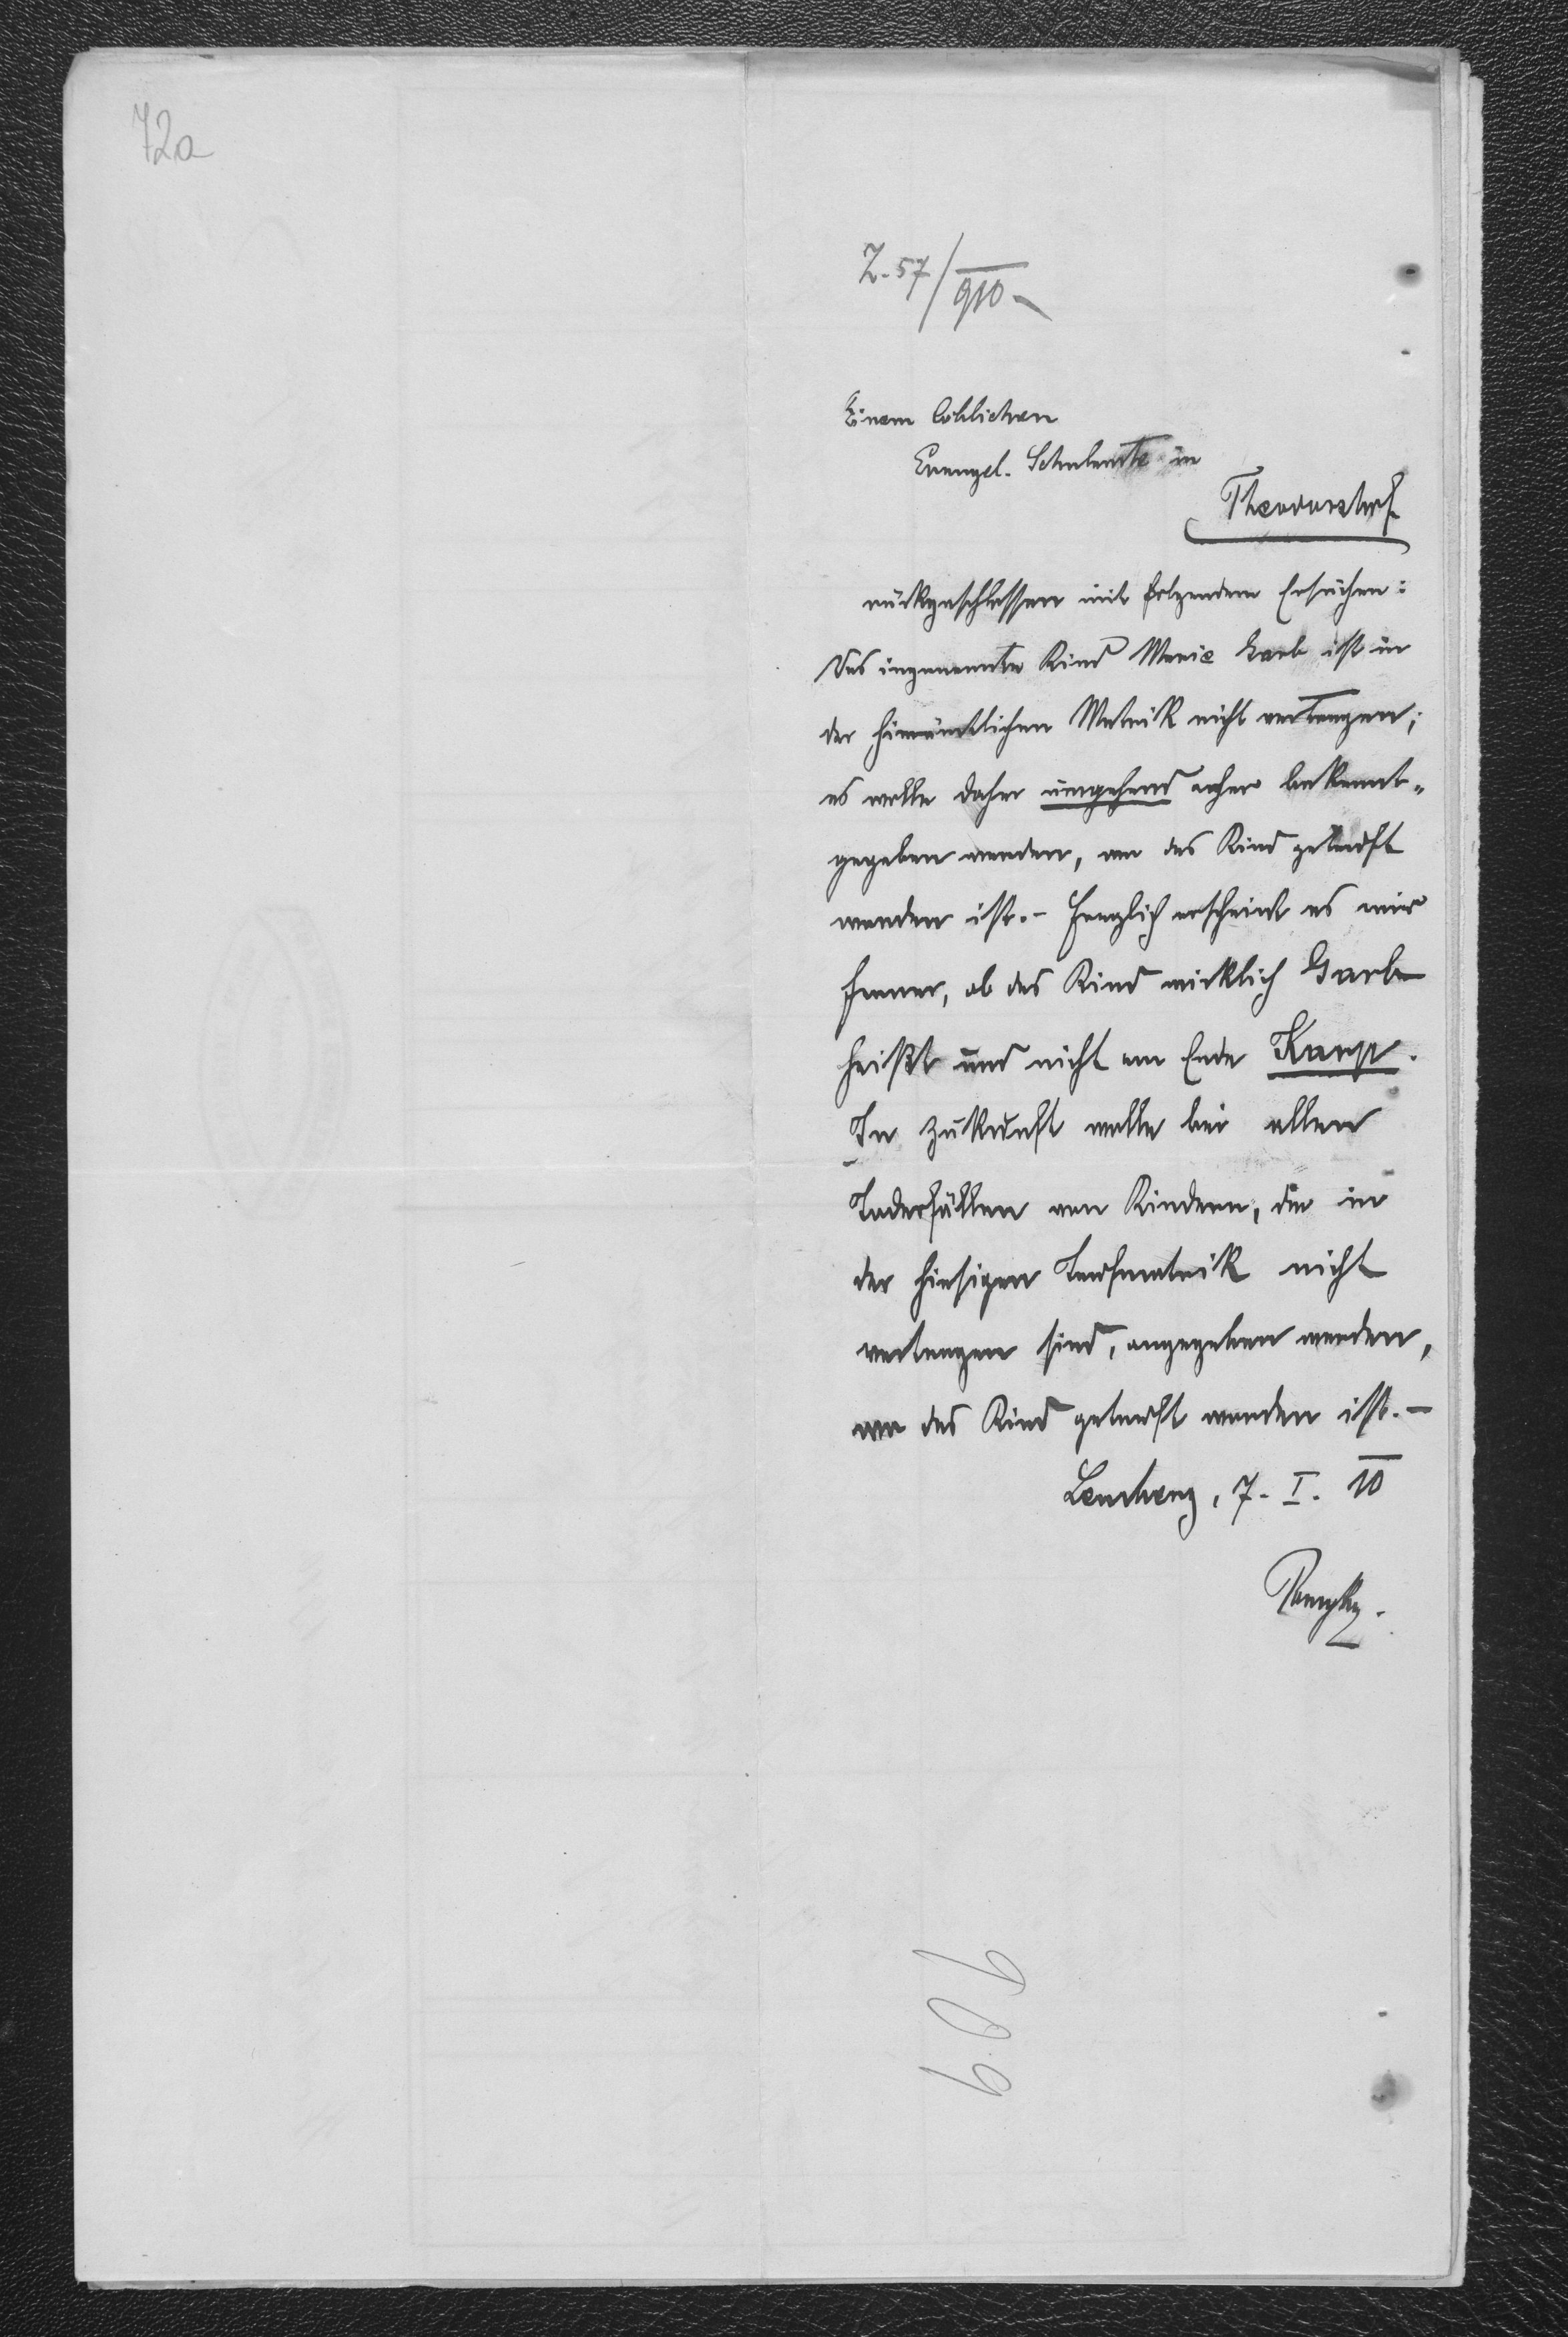 72a
Z. 57/910
Einem löblichen
Evangel. Schulamte in
Theodorshof
rückgeschlossen mit folgendem Ersuchen:
Das ingenannte Kind Marie Garb ist in
der hierämtlichen Matrik nicht vertragen;
es wolle daher umgehend anher bekannt-
gegeben werden, wo das Kind getauft
worden ist. - Fraglich erscheint es mir
ferner, ob das Kind wirklich Garb
heißt und nicht am Ende Karp.
In Zukunft wolle bei allen
Todesfällen von Kindern, die in
der hiesigen Taufmatrik nicht
vertragen sind, angegeben werden,
wo das Kind getauft worden ist. -
Lemberg, 7. I. 10
909